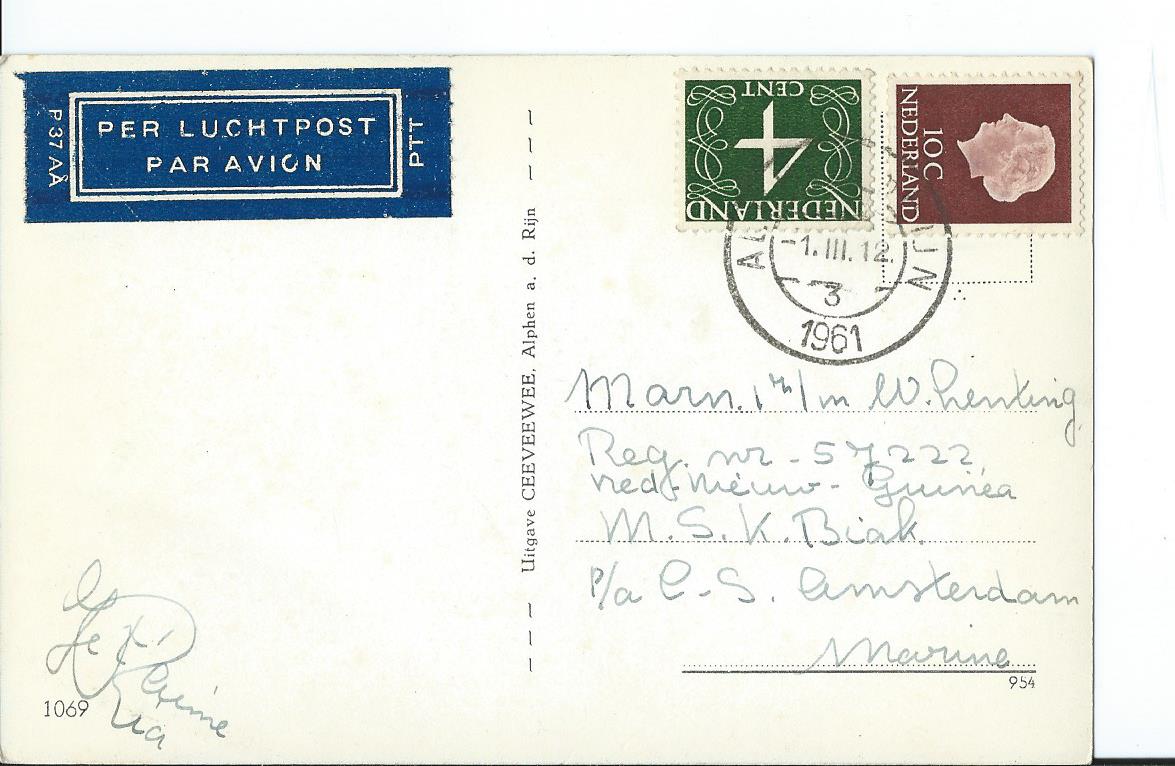 P37AA
PER LUCHTPOST
PAR AVION
PTT
4
CENT
NEDERLAND
NEDERLAND
10 C
-1.III.12.
3
1961
Uitgave CEEVEEWEE, Alphen a. d. Rijn
Marn. 1 m W. Lenting
Reg. nr - 57222
Ned-Nieuw-Guinea
M. S. K. Biak.
P/a C-S. Amsterdam
Marine
954
1069